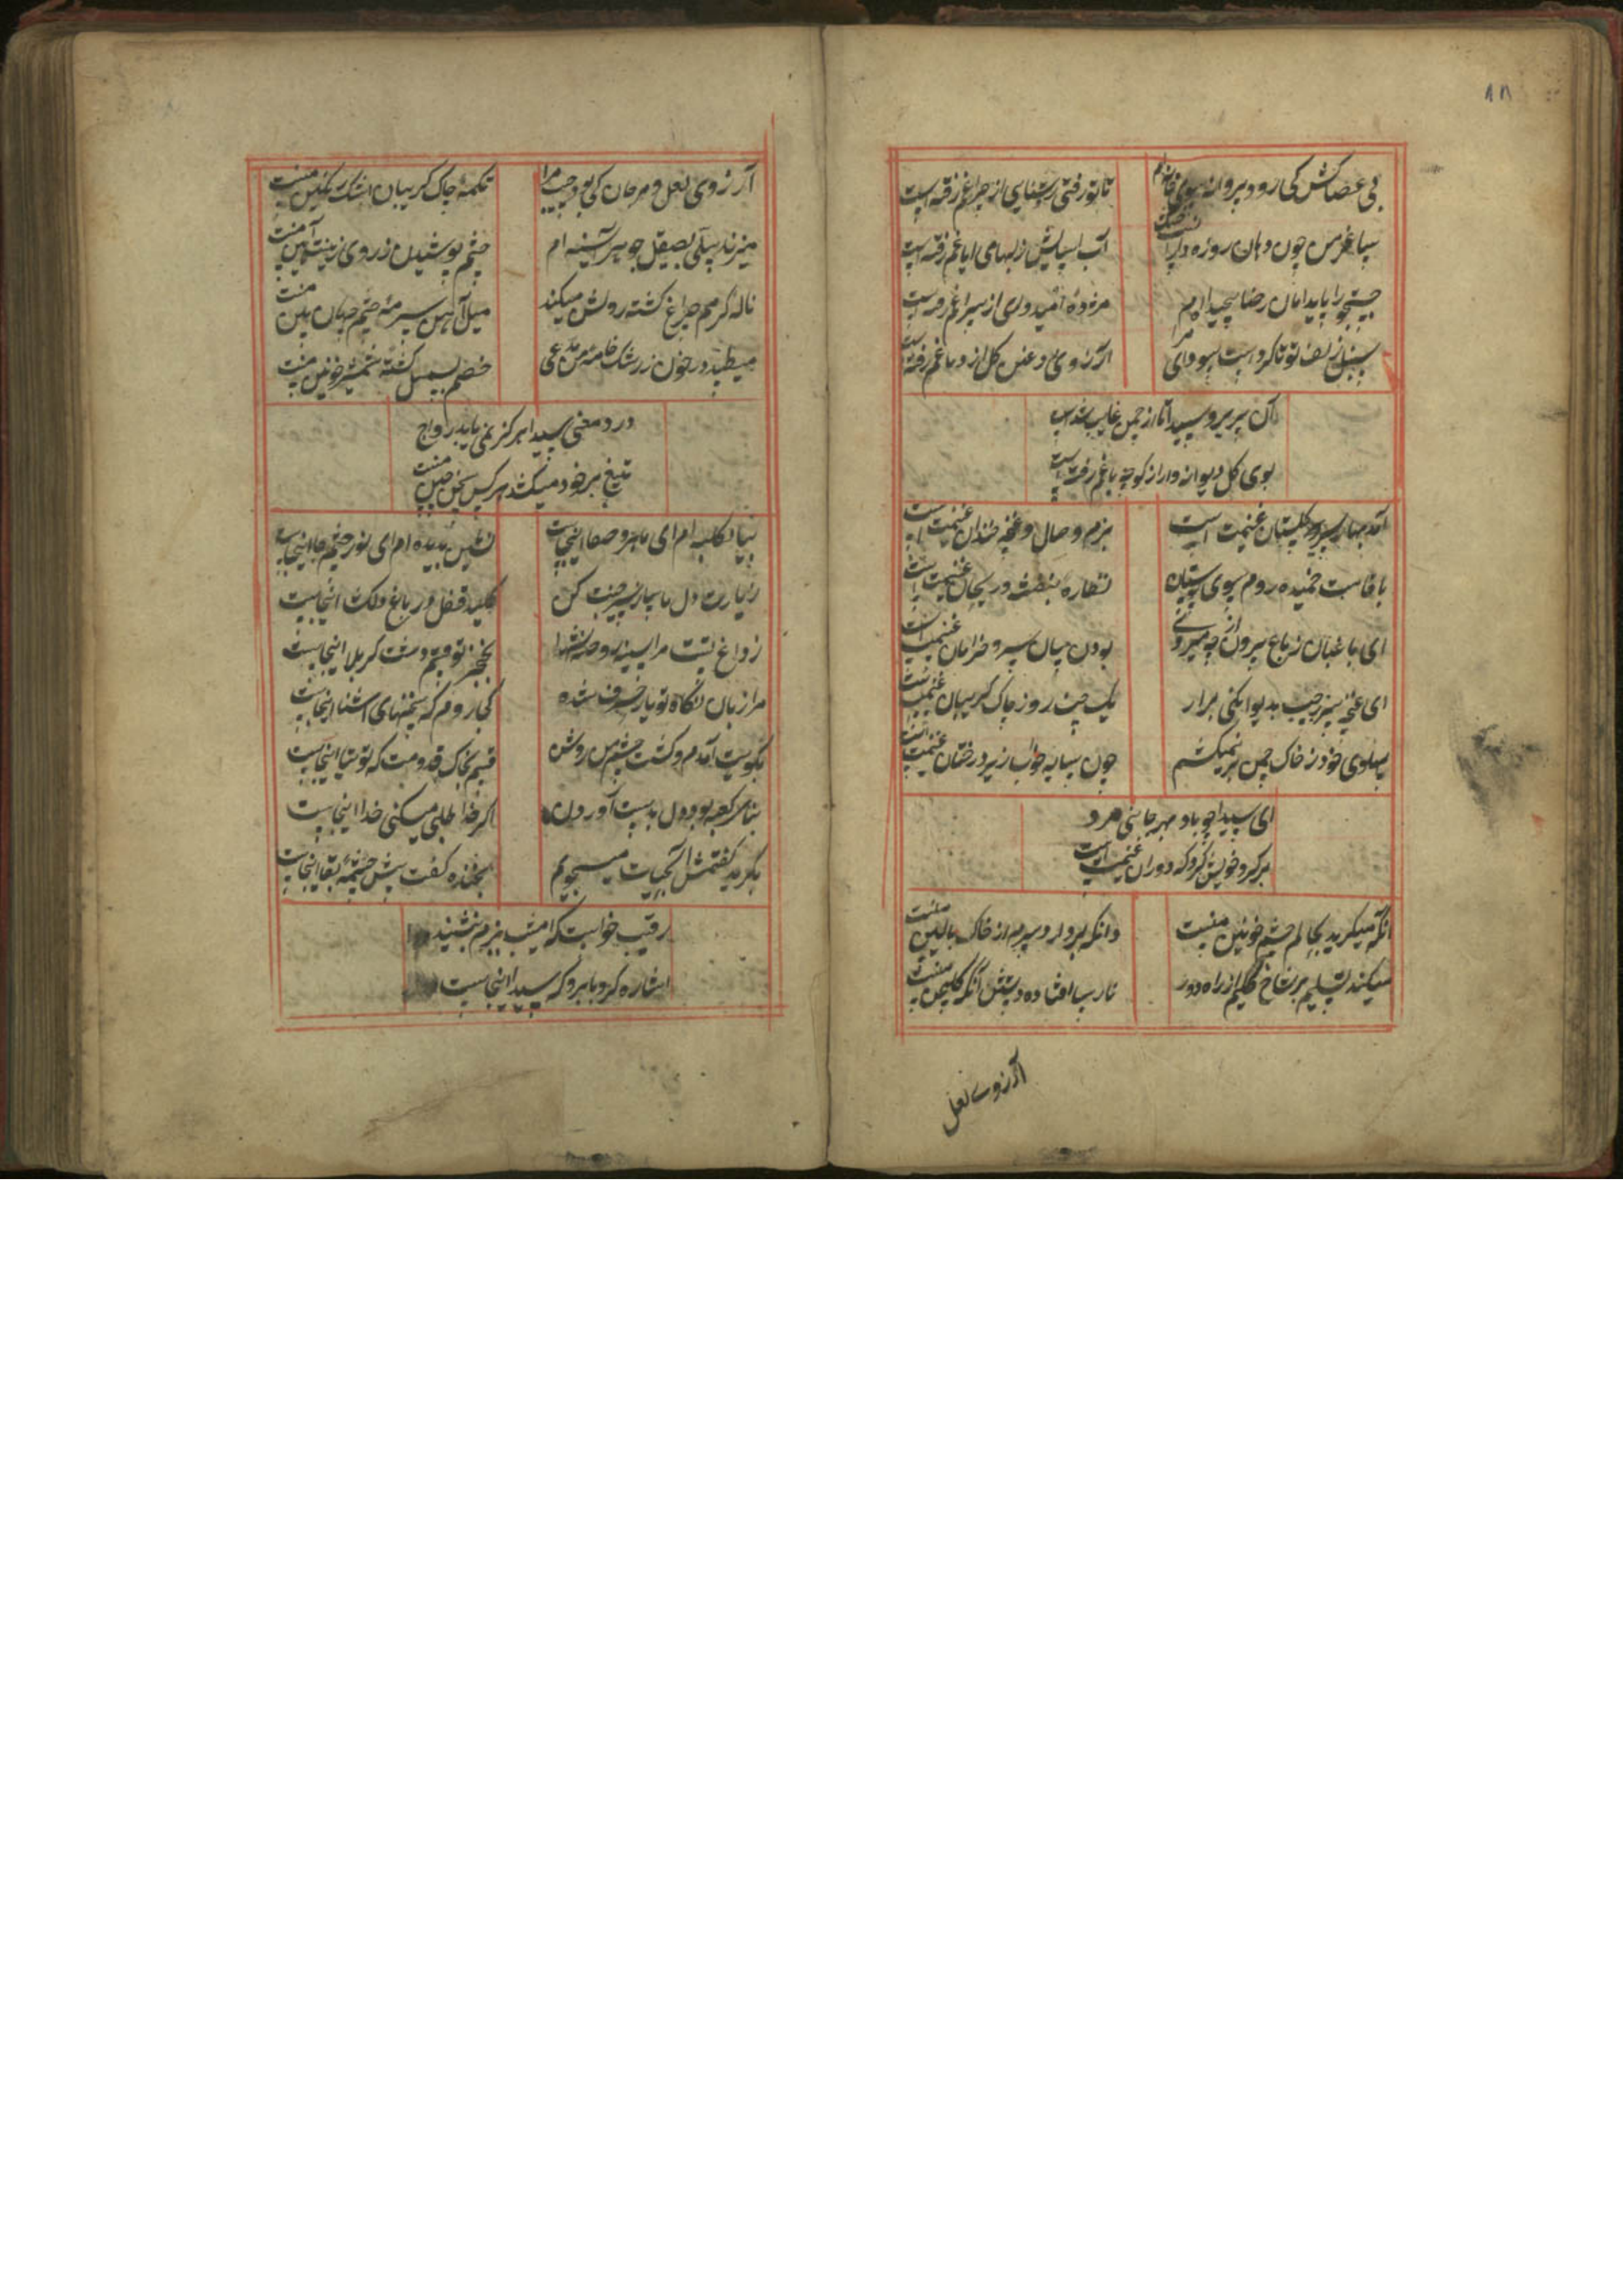 ۸۱
بی عصاکش کی رود پروانه سوی خانه ام
تا تو رفتی روشنایی از چراغم رفته است
ساغر من چون دهان روزه دار است خشک
آب آسایش ز لبهای ایاغم رفته است
جستجو را پا بدامان رضا پیچیده ام
مژده امیدواری از سراغم رفته است
سنبل زلف تو تا کرد است سودای مرا
آرزوی دیدن گل از دماغم رفته است
آن پریرو سیدا تا از چمن غایب شد است
بوی گل دیوانه وار از کوچه باغم رفته است
آمد بهار سیر گلستان غنیمت است
بزم وصال و غنچه خندان غنیمت است
با قامت خمیده روم سوی بوستان
نظاره بنفشه و ریحان غنیمت است
ای باغبان ز باغ برون از چه میروی
بودن میان سرو خرامان غنیمت است
ای غنچه سر ز جیب بدیوانگی برار
یک چند روز چاک گریبان غنیمت است
پهلوی خود ز خاک چمن بر نمیکشم
چون سایه خواب زیر درختان غنیمت است
ای سیدا چو باد بهر جانبی مرو
برگرد خویش گرد که دوران غنیمت است
آنکه میگرید بحالم چشم خونین منست
وانکه بردارد سرم از خاک بالین منست
میکند تسلیم بر شاخ گلم از راه دور
نارسا افتاده دستش آنکه گلچین منست
آرزوی لعل
آرزوی لعل و مرجان کی بود جیب مرا
تکمه چاک گریبان اشک رنگین منست
میزند سیلی بصیقل جوهر آیینه ام
چشم پوشیدن ز روی زینت آیین منست
ناله گرمم چراغ کشته روشن میکند
میل آهن سرمه چشم جهان بین منست
میطپد در خون ز رشک خامه من مدعی
خصم بسمل گشته شمشیر خونین منست
درد معنی سیدا هرگز نمی یابد رواج
تیغ بر خود میکشد هر کس سخن چین منست
بیا بکلبه ام ای ماهرو صفا اینجاست
نشین بدیده ام ای نور چشم جا اینجاست
زیارت دل ما ساز سیر جنت کن
کلید قفل در باغ دلگشا اینجاست
ز داغ تست مرا سینه روضه شهدا
بخنجر تو قسم دشت کربلا اینجاست
مرا زبان نگاه تو یار حرف شده
کجا روم که سخنهای آشنا اینجاست
بکویت آمدم و گشت چشم من روشن
قسم بخاک قدومت که توتیا اینجاست
بنای کعبه بود دل بدست آور دل
اگر خدا طلبی میکنی خدا اینجاست
بگریه گفتمش آبحیات میجویم
بخنده گفت بس چشمه بقا اینجاست
رقیب خواست که امشب ببزم بنشیند
اشاره کرد بابرو که سیدا اینجاست